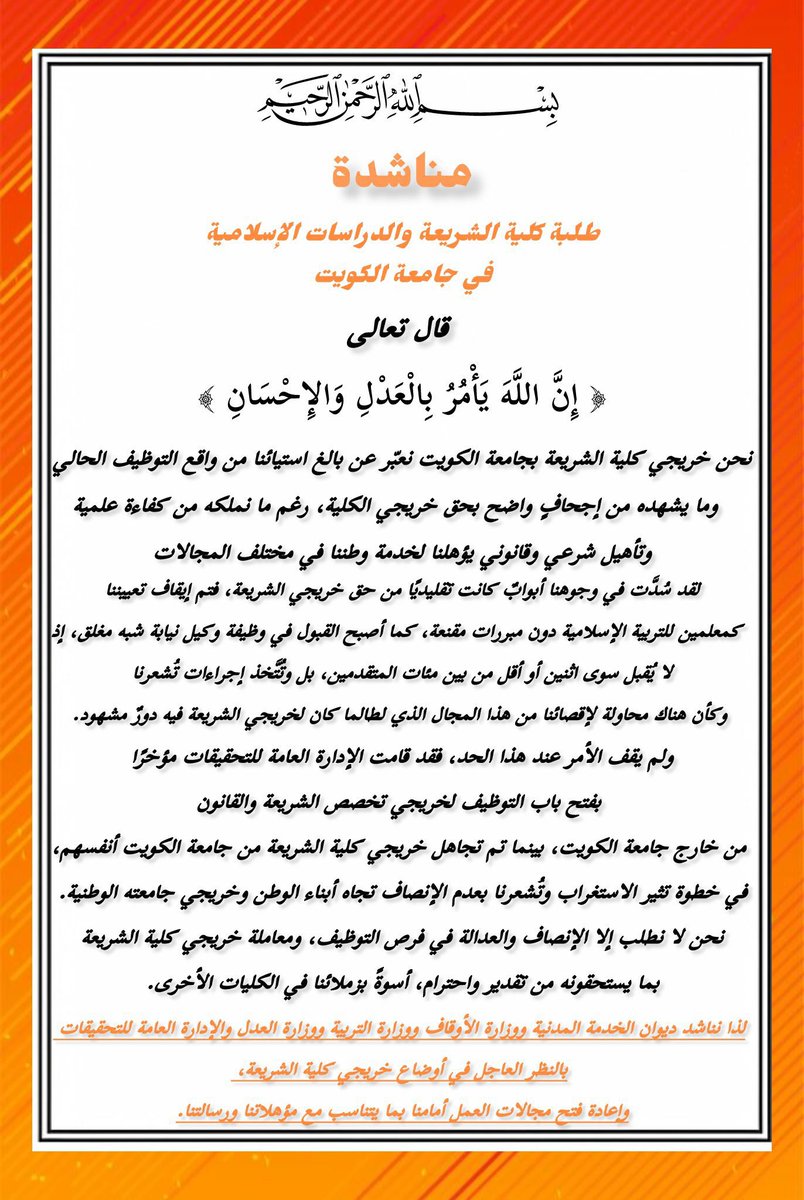 بِسْمِ ٱللَّهِ ٱلرَّحْمَٰنِ ٱلرَّحِيمِ
مناشدة
طلبة كلية الشريعة والدراسات الإسلامية
في جامعة الكويت
قال تعالى
﴿ إِنَّ اللَّهَ يَأْمُرُ بِالْعَدْلِ وَالإِحْسَانِ ﴾
نحن خريجي كلية الشريعة بجامعة الكويت نعبّر عن بالغ استيائنا من واقع التوظيف الحالي
وما يشهده من إجحافٍ واضح بحق خريجي الكلية، رغم ما نملكه من كفاءة علمية
وتأهيل شرعي وقانوني يؤهلنا لخدمة وطننا في مختلف المجالات
لقد سُدَّت في وجوهنا أبوابٌ كانت تقليديًا من حق خريجي الشريعة، فتم إيقاف تعييننا
كمعلمين للتربية الإسلامية دون مبررات مقنعة، كما أصبح القبول في وظيفة وكيل نيابة شبه مغلق، إذ
لا يُقبل سوى اثنين أو أقل من بين مئات المتقدمين، بل وتُتَّخذ إجراءات تُشعرنا
وكأن هناك محاولة لإقصائنا من هذا المجال الذي لطالما كان لخريجي الشريعة فيه دورٌ مشهود.
ولم يقف الأمر عند هذا الحد، فقد قامت الإدارة العامة للتحقيقات مؤخرًا
بفتح باب التوظيف لخريجي تخصص الشريعة والقانون
من خارج جامعة الكويت، بينما تم تجاهل خريجي كلية الشريعة من جامعة الكويت أنفسهم،
في خطوة تثير الاستغراب وتُشعرنا بعدم الإنصاف تجاه أبناء الوطن وخريجي جامعته الوطنية.
نحن لا نطلب إلا الإنصاف والعدالة في فرص التوظيف، ومعاملة خريجي كلية الشريعة
بما يستحقونه من تقدير واحترام، أسوةً بزملائنا في الكليات الأخرى.
لذا نناشد ديوان الخدمة المدنية ووزارة الأوقاف ووزارة التربية ووزارة العدل والإدارة العامة للتحقيقات
بالنظر العاجل في أوضاع خريجي كلية الشريعة،
وإعادة فتح مجالات العمل أمامنا بما يتناسب مع مؤهلاتنا ورسالتنا.